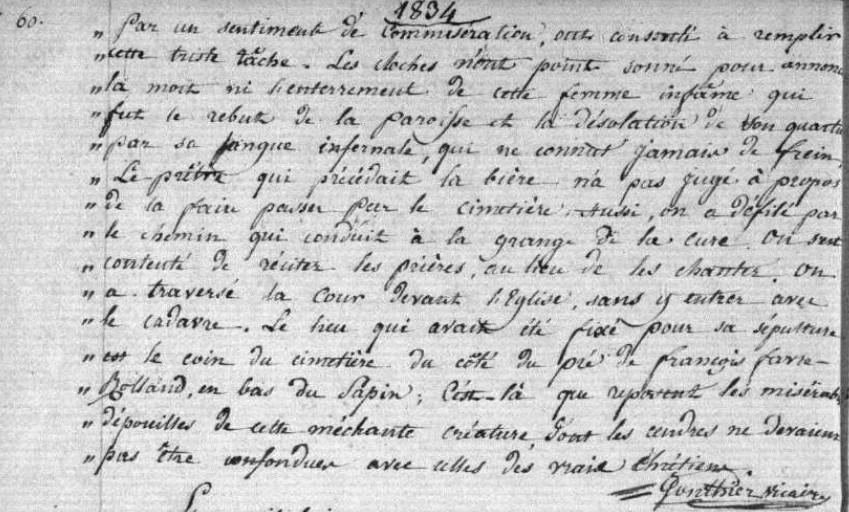 60. 1834
" Par un sentiment de Commisération, ont consenti à remplir
" cette triste tâche. Les cloches n'ont point sonné pour annonc
" la mort ni l'enterrement de cette femme infâme qui
" fut le rebut de la paroisse et la désolation de son quartier
" par sa langue infernale, qui ne connut jamais de frein.
" Le prêtre qui précédait la bière n'a pas jugé à propos
" de la faire passer par le cimetière. Aussi, on a défilé par
" le chemin qui conduit à la grange de la cure. On s'est
" contenté de réciter les prières, au lieu de les chanter. On
" a traversé la Cour devant l'Eglise, sans y entrer avec
" le cadavre. Le lieu qui avait été fixé pour sa sépulture
" est le coin du cimetière du côté du pré de françois favre-
" Rolland, en bas du Sapin; C'est-là que reposent les misérables
" dépouilles de cette méchante créature dont les cendres ne devaient
" pas être confondues avec celles des vrais Chrétiens.
Gonthier Vicaire